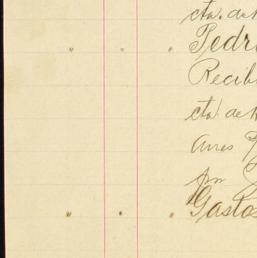 cta. de
" " " Pedr
Recib
cta. de
Aires
por
" " " Gastos